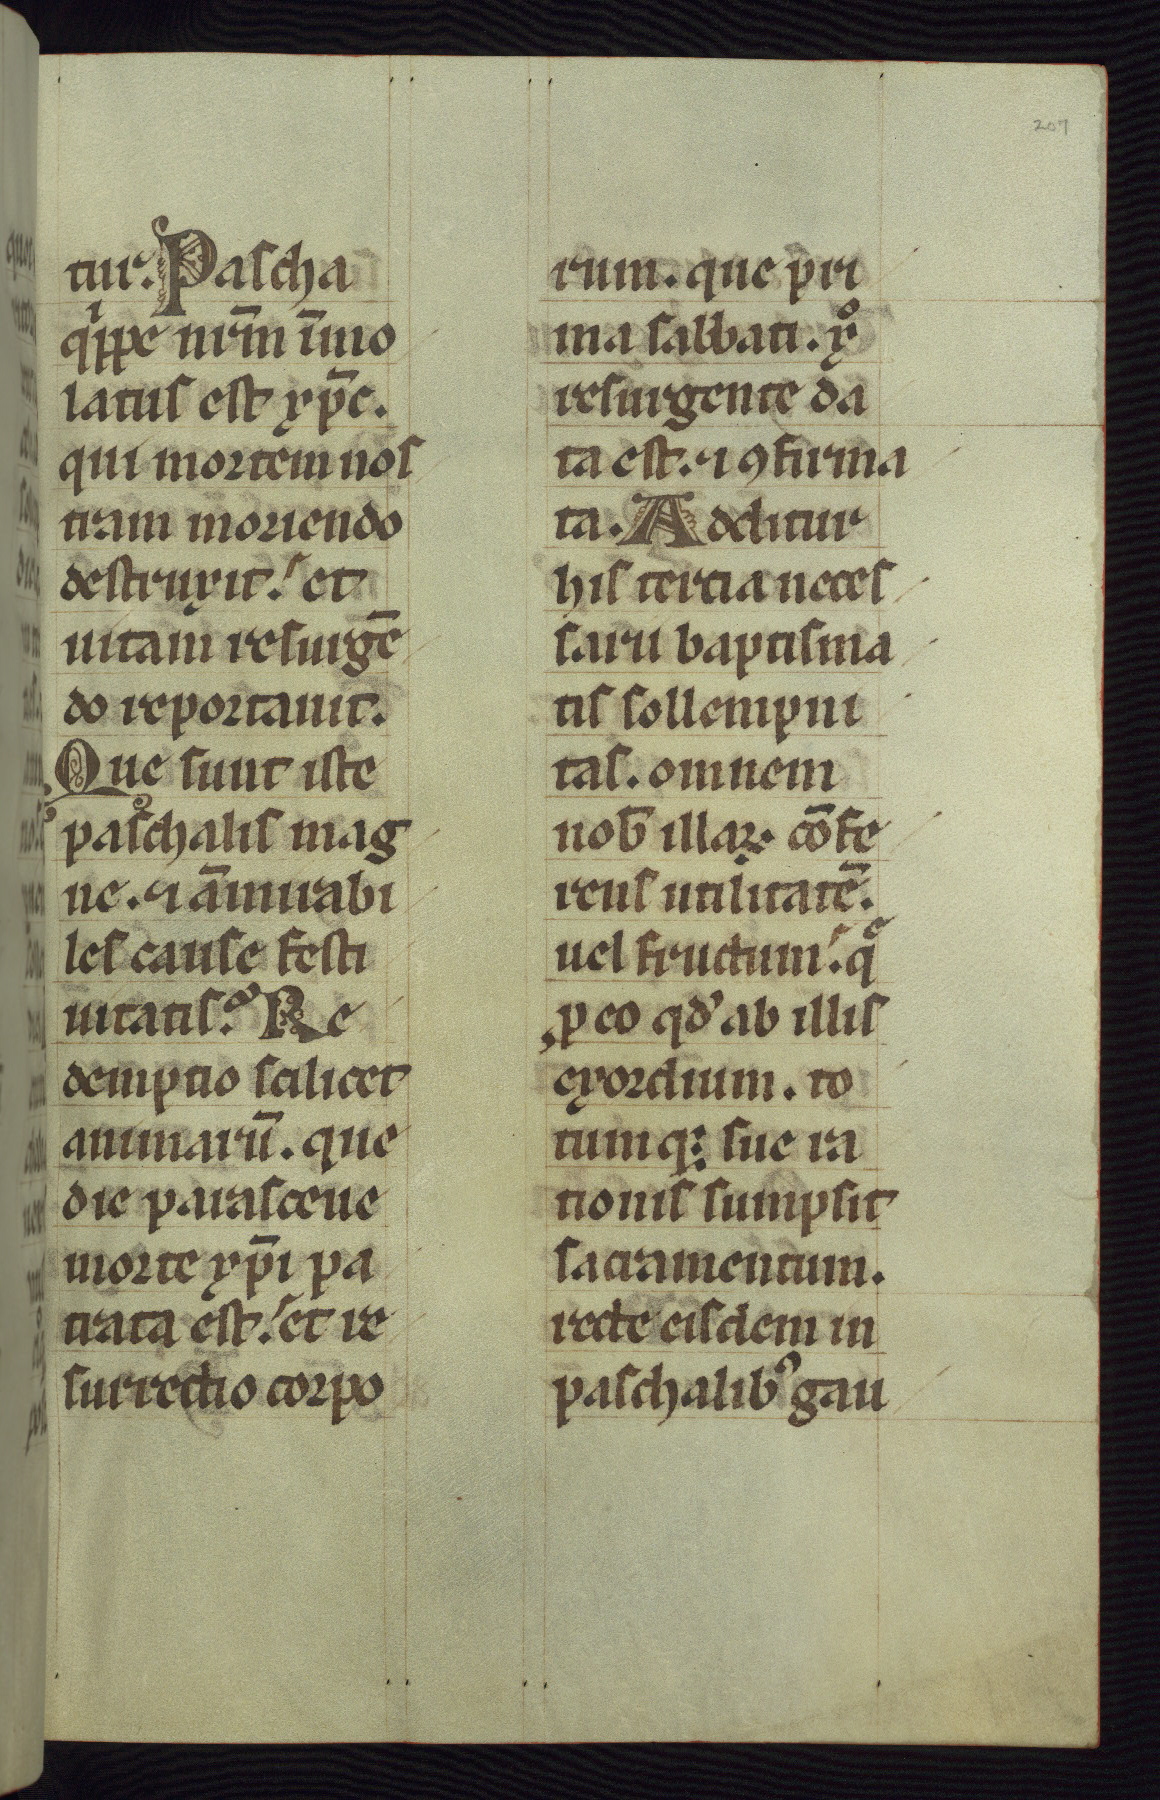 207
tur. Pascha
qͥppe nr̄m īmo
latus est xp̄c.
qui mortem nos
tram moriendo
destruxit. et
uitam resurgē
do reportauit.
Que sunt iste
paschalis mag
ne. ⁊ āmirabi
les cause festi
uitatis. Re
demptio scilicet
animarū. que
die parasceue
morte xp̄i pa
trata est. et re
surrectio corpo
rum. que pri
ma sabbati. xͦ
resurgente da
ta est. ⁊ ꝯfirma
ta. Additur
his tercia neces
saru baptisma
tis sollempni
tas. omnem
nob̄ illaꝝ. cōfe
rens utilitatē.
uel fructum. qͤ
ꝓ eo qd' ab illis
exordium. to
tumq; sue ra
tionis sumpsit
sacramentum.
recte eisdem in
paschalibꝰ gau